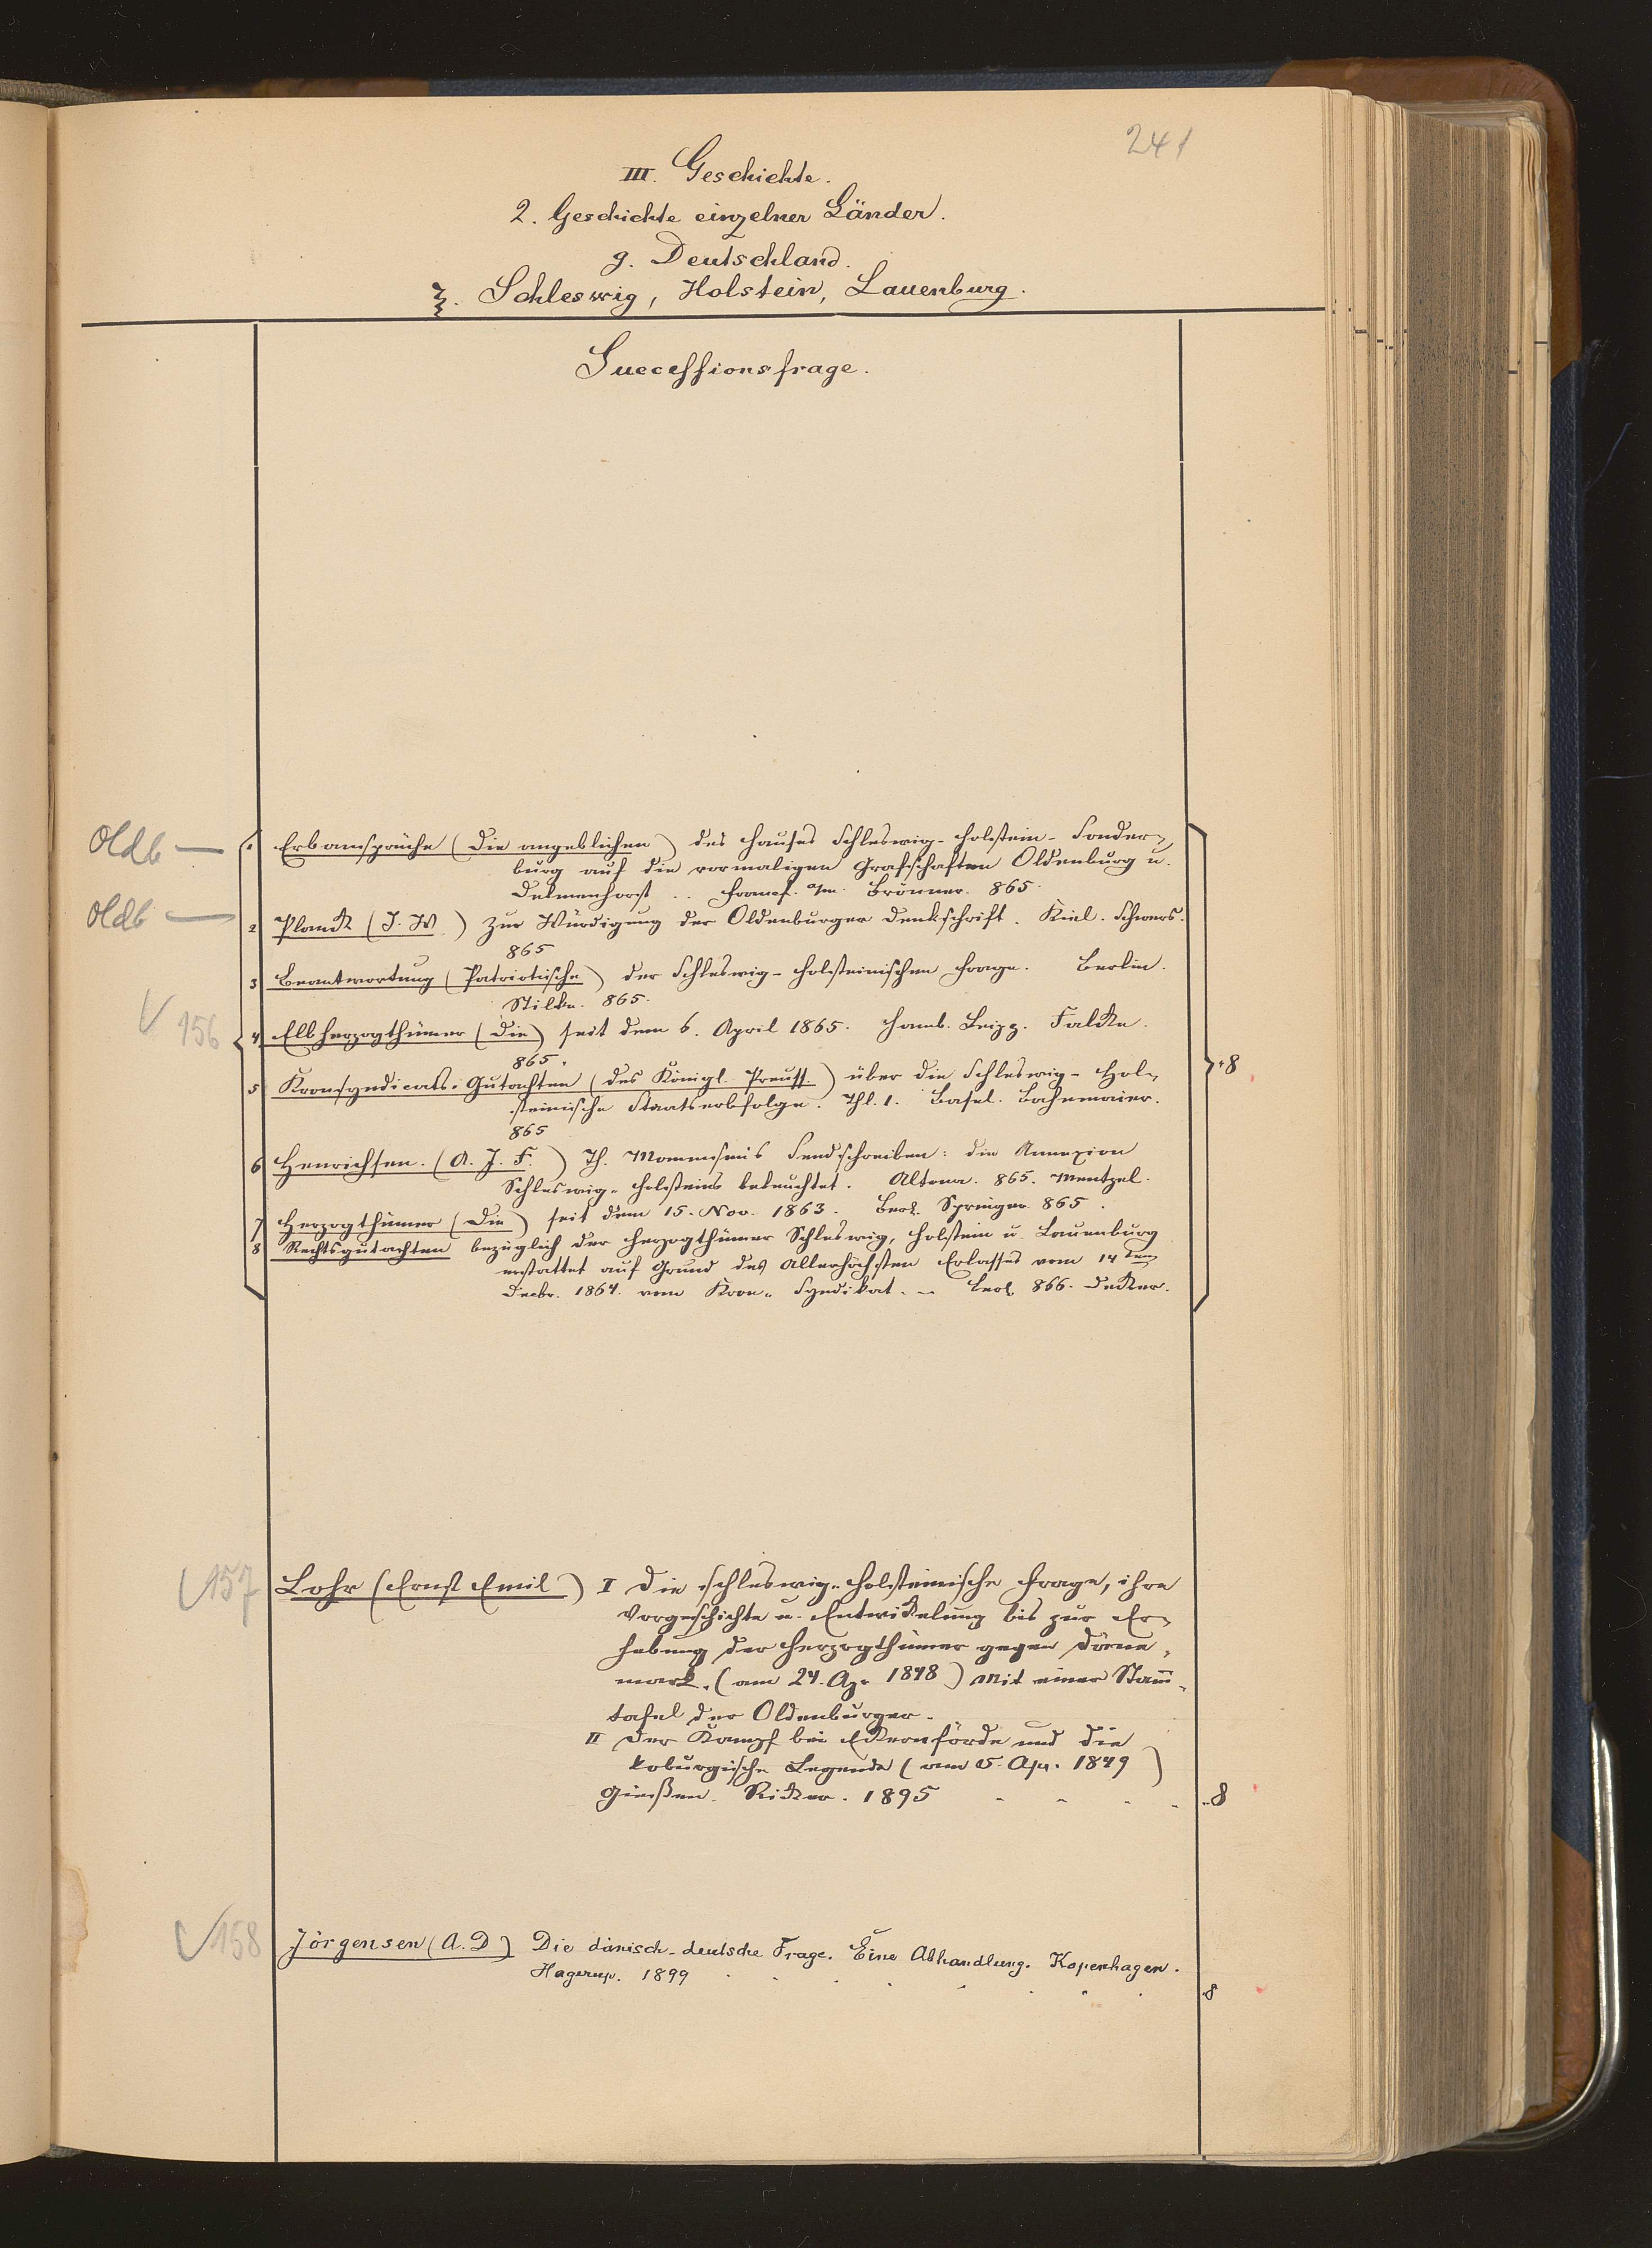 241
III. Geschichte.
2. Geschichte einzelner Länder.
g. Deutschland.
ξ. Schleswig, Holstein, Lauenburg.
Successionsfrage.
Oldb — 1 Erbansprüche (Die angeblichen) des Hauses Schleswig-Holstein-Sonder-
burg auf die vormaligen Grafschaften Oldenburg u.
Delmenhorst .. Francf. a/m. Brönner. 865.
Oldb — 2 Planck (J. W.) Zur Würdigung der Oldenburger Denkschrift. Kiel. Schwers.
865
3 Beantwortung (Patriotische) der Schleswig-Holsteinischen Frage. Berlin.
Stilke. 865.
156 4 Elbherzogthümer (Die) seit dem 6. April 1865. Hamb. Leipz. Falcke.
865.
5 Kronsyndicats-Gutachten (des Königl. Preuss.) über die Schleswig-Hol-
steinische Staatserbfolge. Thl. 1. Basel. Bahnmaier.
865
8
6 Henrichsen. (A. J. F.) Th. Mommsens Sendschreiben: die Annexion
Schleswig-Holsteins beleuchtet. Altona. 865. Mentzel.
7 Herzogthümer (Die) seit dem 15. Nov. 1863. Berl. Springer 865.
8 Rechtsgutachten bezüglich der Herzogthümer Schleswig, Holstein u. Lauenburg
erstattet auf Grund des Allerhöchsten Erlasses vom 14ten
Decbr. 1864. vom Kron-Syndikat. – Berl. 866. Decker.
157 Lohr (Ernst Emil) I Die schleswig-holsteinische Frage, ihre
Vorgeschichte u. Entwickelung bis zur Er-
hebung der Herzogthümer gegen Däne-
mark. (am 24. Apr 1848) Mit einer Stam̄-
tafel der Oldenburger.
II Der Kampf bei Eckernförde und die
koburgische Legende (am 5. Apr. 1849)
Gießen. Ricker. 1895 8
158 Jörgensen (A. D) Die dänisch-deutsche Frage. Eine Abhandlung. Kopenhagen.
Hagerup. 1899 8